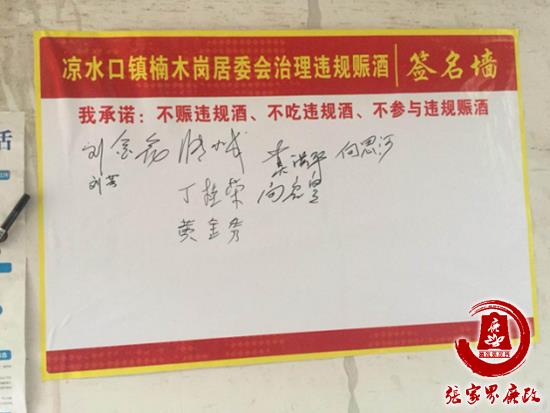 凉水口镇楠木岗居委会治理违规赈酒 签名墙
我承诺：不赈违规酒、不吃违规酒、不参与违规赈酒
向思河
刘芳
丁桂荣
黄金秀
活
张家界廉政